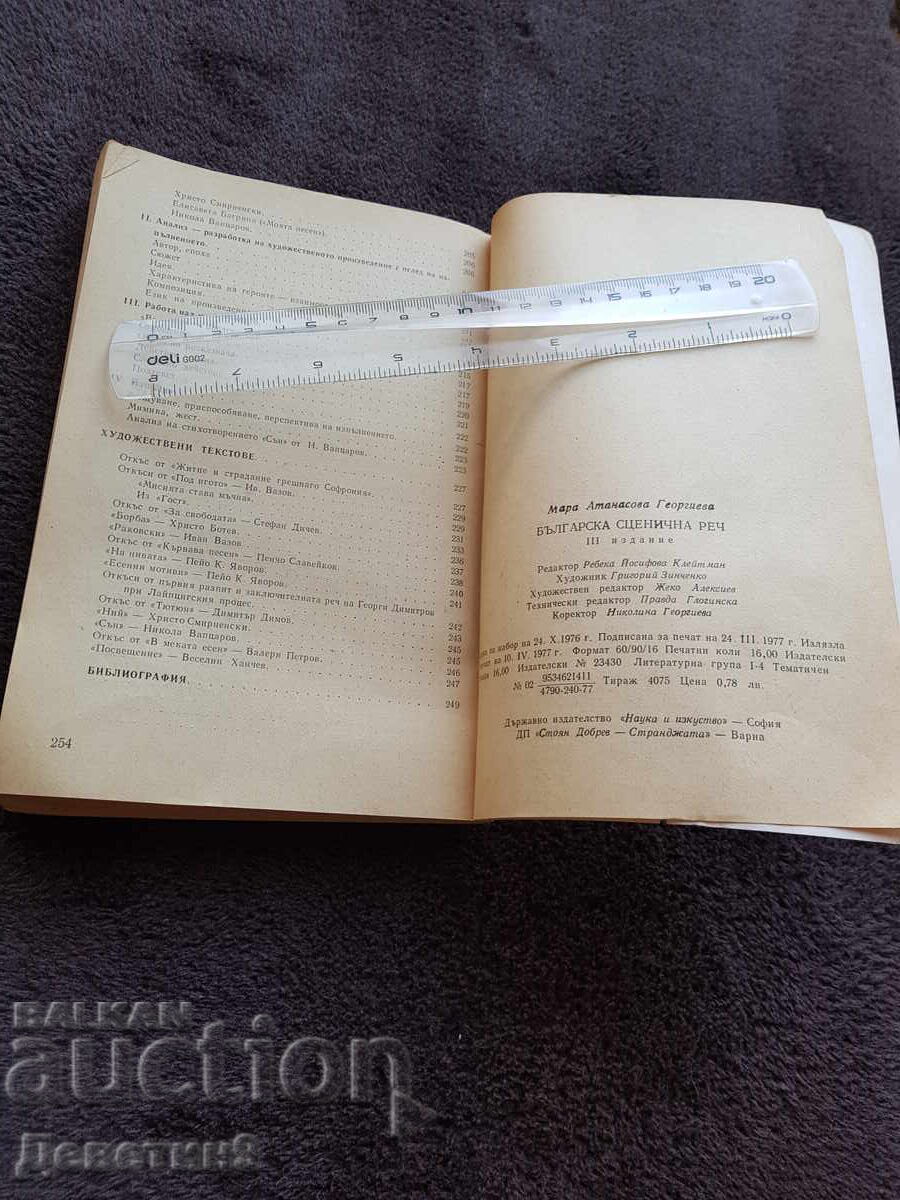 Христо Смирненски.
Елисавета Багряна («Моята песен»).
Никола Вапцаров.
II. Анализ — разработка на художественото произведение с оглед на из-
пълнението.
Автор, епоха
Сюжет
Идея
Характеристика на героите —
Композиция.
Език на
III. Работа
205
206
206
215
217
217
219
220
221
222
222
223
223
приспособяване, перспектива на изпълнението.
Мимика, жест.
Анализ на стихотворението «Сън» от Н. Вапцаров.
ХУДОЖЕСТВЕНИ ТЕКСТОВЕ
Откъс от «Житие и страдание грешнаго Софрония». 227
Откъси от «Под игото» — Ив. Вазов. 227
«Мисията става мъчна». 229
Из «Гост». 229
Откъс от «За свободата» — Стефан Дичев. 231
«Борба» — Христо Ботев. 233
«Раковски» — Иван Вазов 236
Откъс от «Кървава песен» — Пенчо Славейков. 237
«На нивата» — Пейо К. Яворов. 238
«Есенни мотиви» — Пейо К. Яворов. 240
Откъси от първия разпит и заключителната реч на Георги Димитров 241
при Лайпцигския процес.
Откъс от «Тютюн» — Димитър Димов. 242
«Ний» — Христо Смирненски. 243
«Сън» — Никола Вапцаров. 245
Откъс от «В меката есен» — Валери Петров. 245
«Посвещение» — Веселин Ханчев. 246
247
БИБЛИОГРАФИЯ 249
254
0 1 2 3 4 5 6 7 8 9 10 11 12 13 14 15 16 17 18 19 20
deli G002
8 7 6 5 4 3 2 1 0
Мара Атанасова Георгиева
БЪЛГАРСКА СЦЕНИЧНА РЕЧ
III издание
Редактор Ребека Йосифова Клейтман
Художник Григорий Зинченко
Художествен редактор Жеко Алексиев
Технически редактор Правда Глогинска
Коректор Николина Георгиева
за набор на 24. X. 1976 г. Подписана за печат на 24. III. 1977 г. Излязла
на 10. IV. 1977 г. Формат 60/90/16 Печатни коли 16,00 Издателски
16,00 Издателски № 23430 Литературна група I-4 Тематичен
№ 02 9534621411
4790-240-77 Тираж 4075 Цена 0,78 лв.
Държавно издателство «Наука и изкуство» — София
ДП «Стоян Добрев — Странджата» — Варна
BALKAN
auction
Деветин8